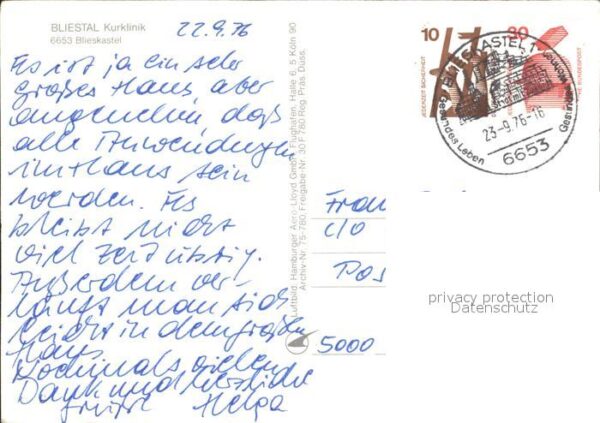 BLIESTAL Kurklinik
6653 Blieskastel
22.9.76
Es ist ja ein sehr
großes Haus aber
angenehm daß
alle Anwendungen
im Haus sein
werden. Es
bleibt nicht
viel Zeit übrig.
Außerdem ver-
läuft man sich
leicht in dem großen
Haus.
Nochmals vielen
Dank und herzliche
Grüße Helga
Luftbild: Hamburger Aero-Lloyd GmbH Flughafen, Halle 6, 5 Köln 90
Archiv-Nr. 75-780, Freigabe-Nr. 30 F 780 Reg. Präs. Düss.
10
30
JEDERZEIT SICHERHEIT
DEUTSCHE BUNDESPOST
BLIESKASTEL 1
Gesundes Leben
23-9.76-16
6653
Frau
c/o
Pos
5000
privacy protection
Datenschutz